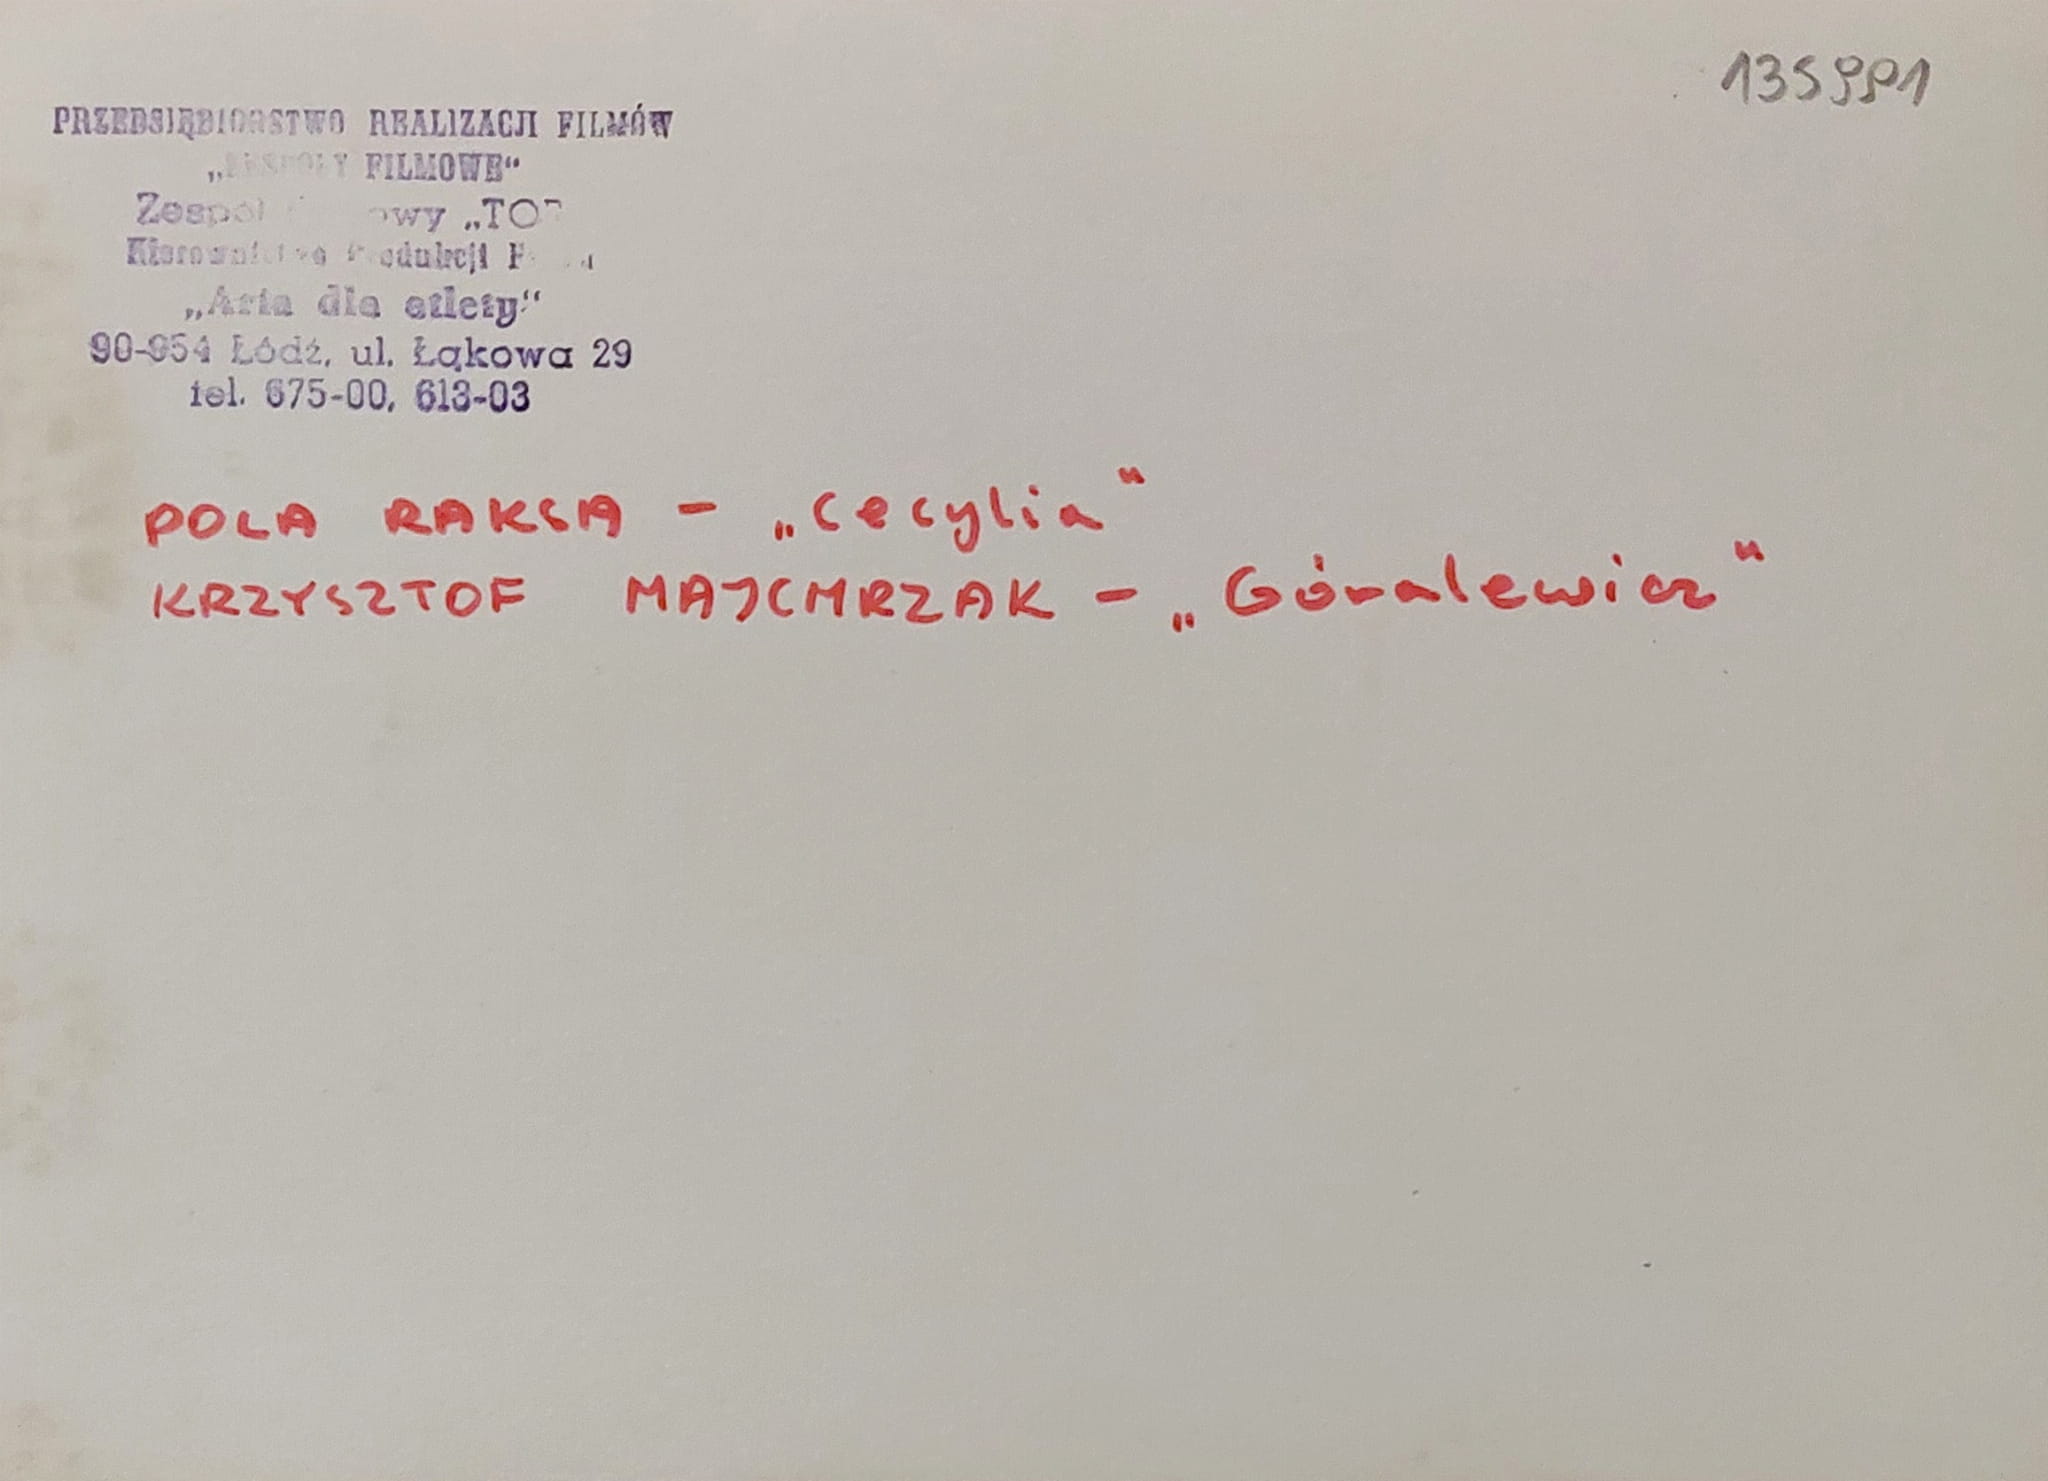 135991
PRZEDSIĘBIORSTWO REALIZACJI FILMÓW
„ZESPOŁY FILMOWE“
Zespół „TOR
Kierownictwo Produkcji
„Aria dla atlety“
90-954 Łódź, ul. Łąkowa 29
tel. 675-00, 613-03
POLA RAKSA - „Cecylia"
KRZYSZTOF MAJCHRZAK - „Góralewicz"